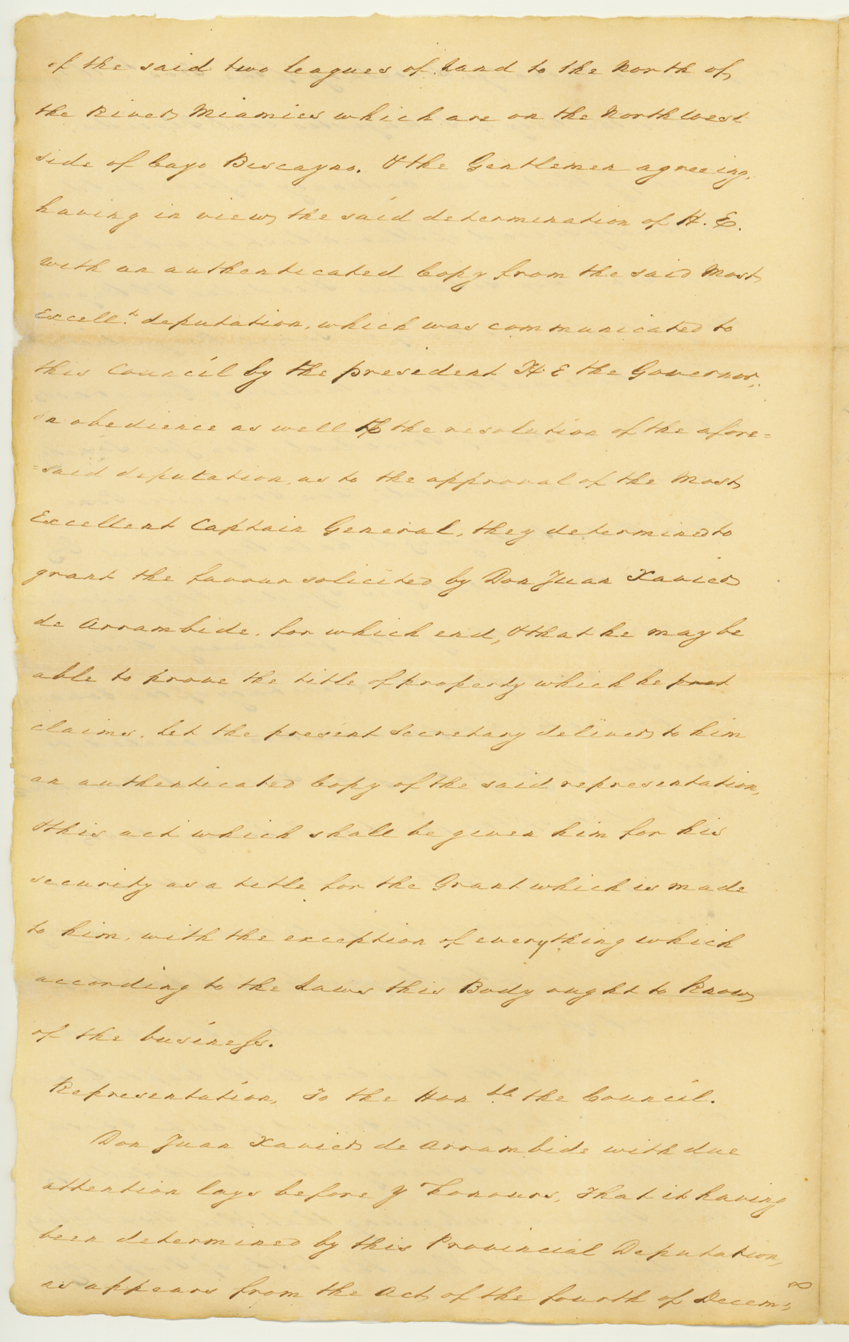 of the said two leagues of Land to the North of
the River Miamies which are on the North West
side of Cayo Biscayno. & the Gentlemen agreeing,
having in view the said determination of H. E.
with an authenticated Copy from the said Most
Excell.t deputation, which was communicated to
this Council by the president H E the Governor,
in obedience as well to the resolution of the afore=
=said deputation, as to the approval of the Most
Excellent Captain General, they determined to
grant the favour solicited by Don Juan Xavier
de Arrambide, for which end, & that he may be
able to prove the title of property which he
claims, let the present Secretary deliver to him
an authenticated Copy of the said representation,
& this act which shall be given him for his
security as a title for the Grant which is made
to him, with the exception of everything which
according to the Laws this Body ought to know
of the business.
Representation, To the Hon ble the Council.
Don Juan Xavier de Arrambide with due
attention lays before Y honours, That it having
been determined by this Provincial Deputation,
as appears from the Act of the fourth of Decem-